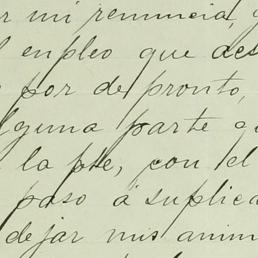 r mi renuncia, y
l empleo que des
por de pronto,
lguna parte q
la pte, con el
paso á suplica
dejar mis anim